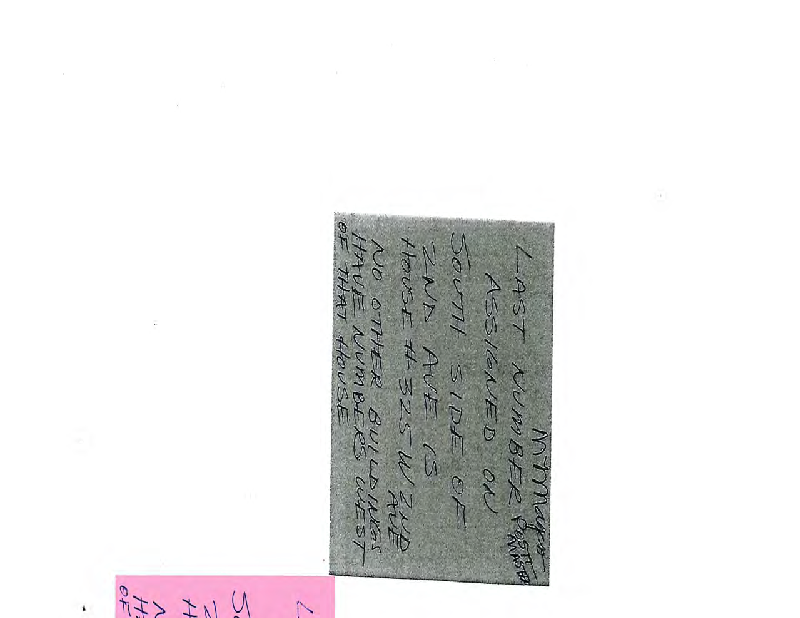 LAST NUMBER
ASSIGNED ON
SOUTH SIDE OF
2ND AVE IS
HOUSE #325 W 2ND
AVE
NO OTHER BUILDINGS
HAVE NUMBERS WEST
OF THAT HOUSE
L
So
2
H
N
HA
OF